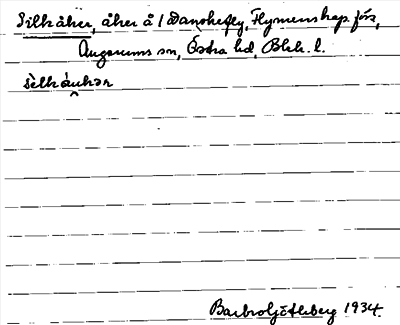 Silkåker, åker å 1 Danskefly, Flymenskap. förs,
Augerums sn, Östra hd, Blek. l.
sèlkåukər
Barbro Ljötleberg 1934.